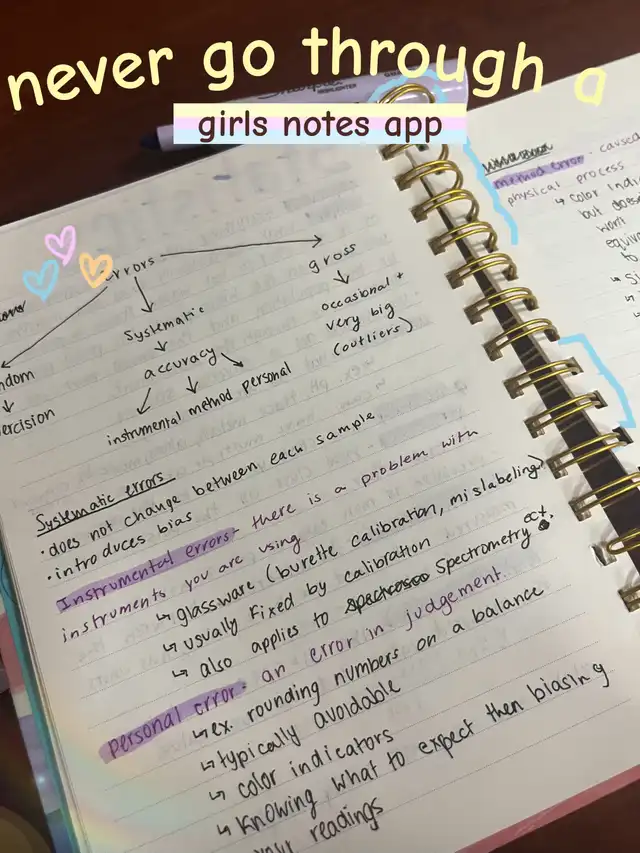 never go through a
girls notes app
Sharpie
HIGHLIGHTER
errors
gross
occasional +
very big
(outliers)
Systematic
accuracy
instrumental method personal
ndom
ercision
Systematic errors
• does not change between each sample
• introduces bias
Instrumental errors - there is a problem with
instruments you are using
↳ glassware (burette calibration, mislabeling)
↳ usually fixed by calibration
↳ also applies to Spectrometry ect.
personal error - an error in judgement.
↳ ex. rounding numbers on a balance
↳ typically avoidable
↳ color indicators
↳ knowing what to expect then biasing
your readings
method error - cause
physical process
↳ color indi
but does
won't
equiv
to
↳ Si